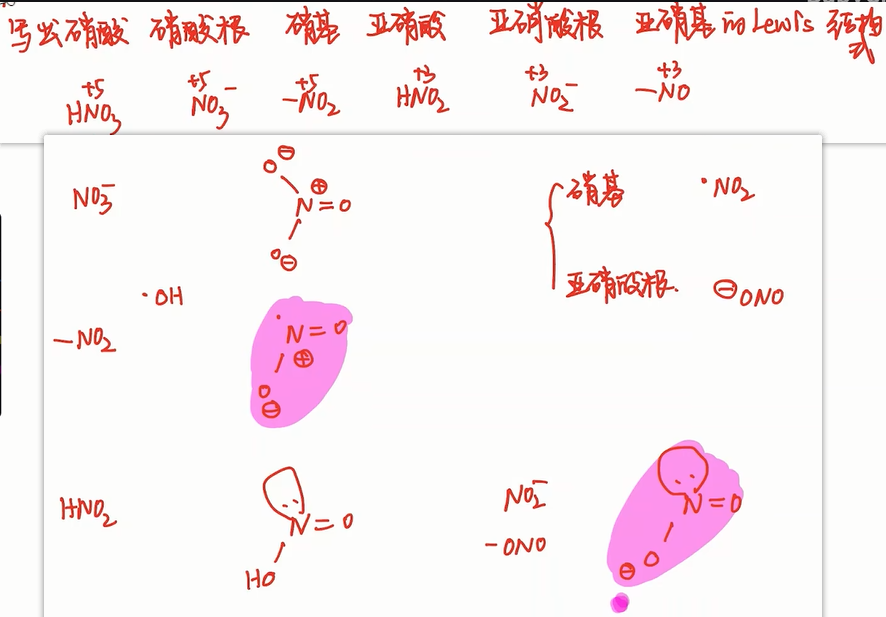 写出硝酸 硝酸根 硝基 亚硝酸 亚硝酸根 亚硝基 in Lewis 结构式
+5 +5 +5 +3 +3 +3
HNO₃ NO₃⁻ -NO₂ HNO₂ NO₂⁻ -NO
O ⊖
NO₃⁻ ⊕ N=O
O ⊖
硝基 ·NO₂
亚硝酸根. ⊖ONO
·OH
-NO₂ ·N=O
⊕
O
⊖
HNO₂ N=O
HO
NO₂⁻ N=O
-ONO ⊖ O